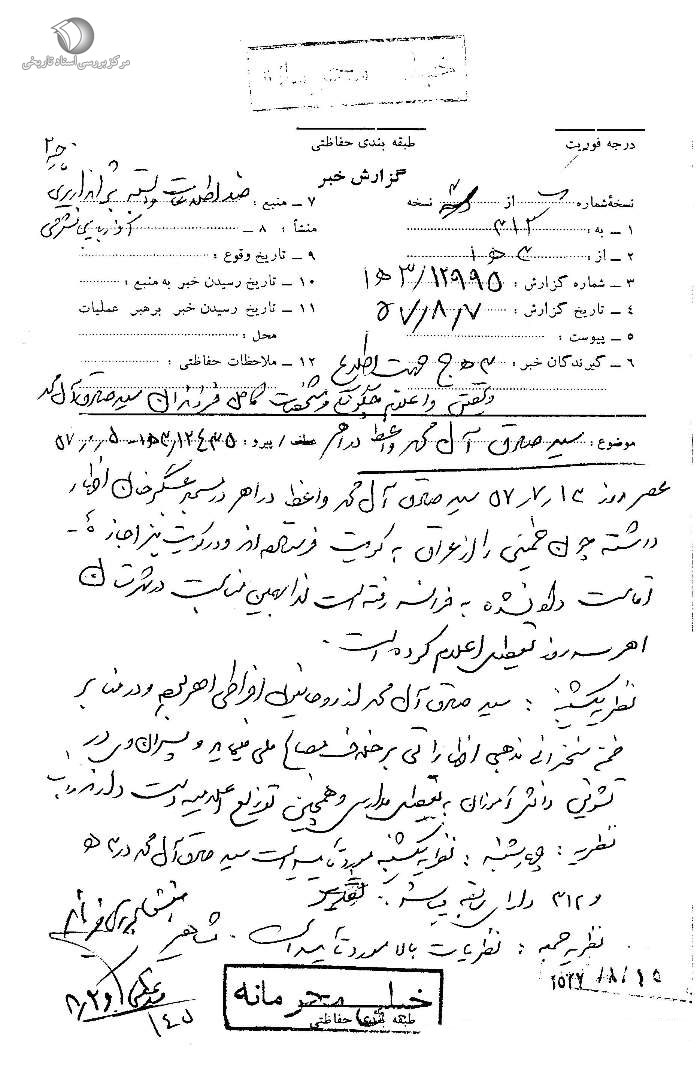 مرکز بررسی اسناد تاریخی
خیلی محرمانه
درجه فوریت
طبقه بندی حفاظتی
گزارش خبر
نسخهٔ شماره از نسخه
۱ ــ به : ۳۱۲
۲ ــ از : ۳ ه‍ ۱
۳ ــ شماره گزارش : ۱۲۹۹۵/۳ ه‍ ۱
۴ ــ تاریخ گزارش : ۵۷/۸/۷
۵ ــ پیوست :
۶ ــ گیرندگان خبر : ۳ ه‍ ج جهت اطلاع
۷ ــ منبع :
منشأ : ۸ ــ
۹ ــ تاریخ وقوع :
۱۰ ــ تاریخ رسیدن خبر به منبع :
۱۱ ــ تاریخ رسیدن خبر برهبر عملیات
محل :
۱۲ ــ ملاحظات حفاظتی :
و اعلام چگونگی و مشخصات کامل فرزندان سید صادق آل محمد
موضوع : سید صادق آل محمد واعظ در اهر عطف / پیرو : ۱۲۴۳۵/۳ ه‍ ۱ ــ
عصر روز ۵۷/۷/۱۳ سید صادق آل محمد واعظ در اهر در مسجد عسگرخان اظهار
داشته چون خمینی را از عراق به کویت فرستاده‌اند و در کویت نیز اجازه
اقامت داده نشده به فرانسه رفته است لذا بهمین مناسبت در شهرستان
اهر سه روز تعطیل اعلام کرده است .
نظریه یکشنبه : سید صادق آل محمد از روحانیون افراطی اهر بوده و در منابر
ضمن سخنرانی مذهبی اظهاراتی برخلاف مصالح ملی مینماید و پسران وی در
تشویق دانش آموزان به تعطیلی مدارس و همچنین توزیع اعلامیه دست دارند
نظریه چهارشنبه : نظریه یکشنبه مورد تأیید است سید صادق آل محمد در ۳ ه‍
و ۳۱۲ دارای سابقه میباشد .
نظریه جمعه : نظریات بالا مورد تأیید است .
۲۵۳۷/۸/۱۵
خیلی محرمانه
طبقه بندی حفاظتی